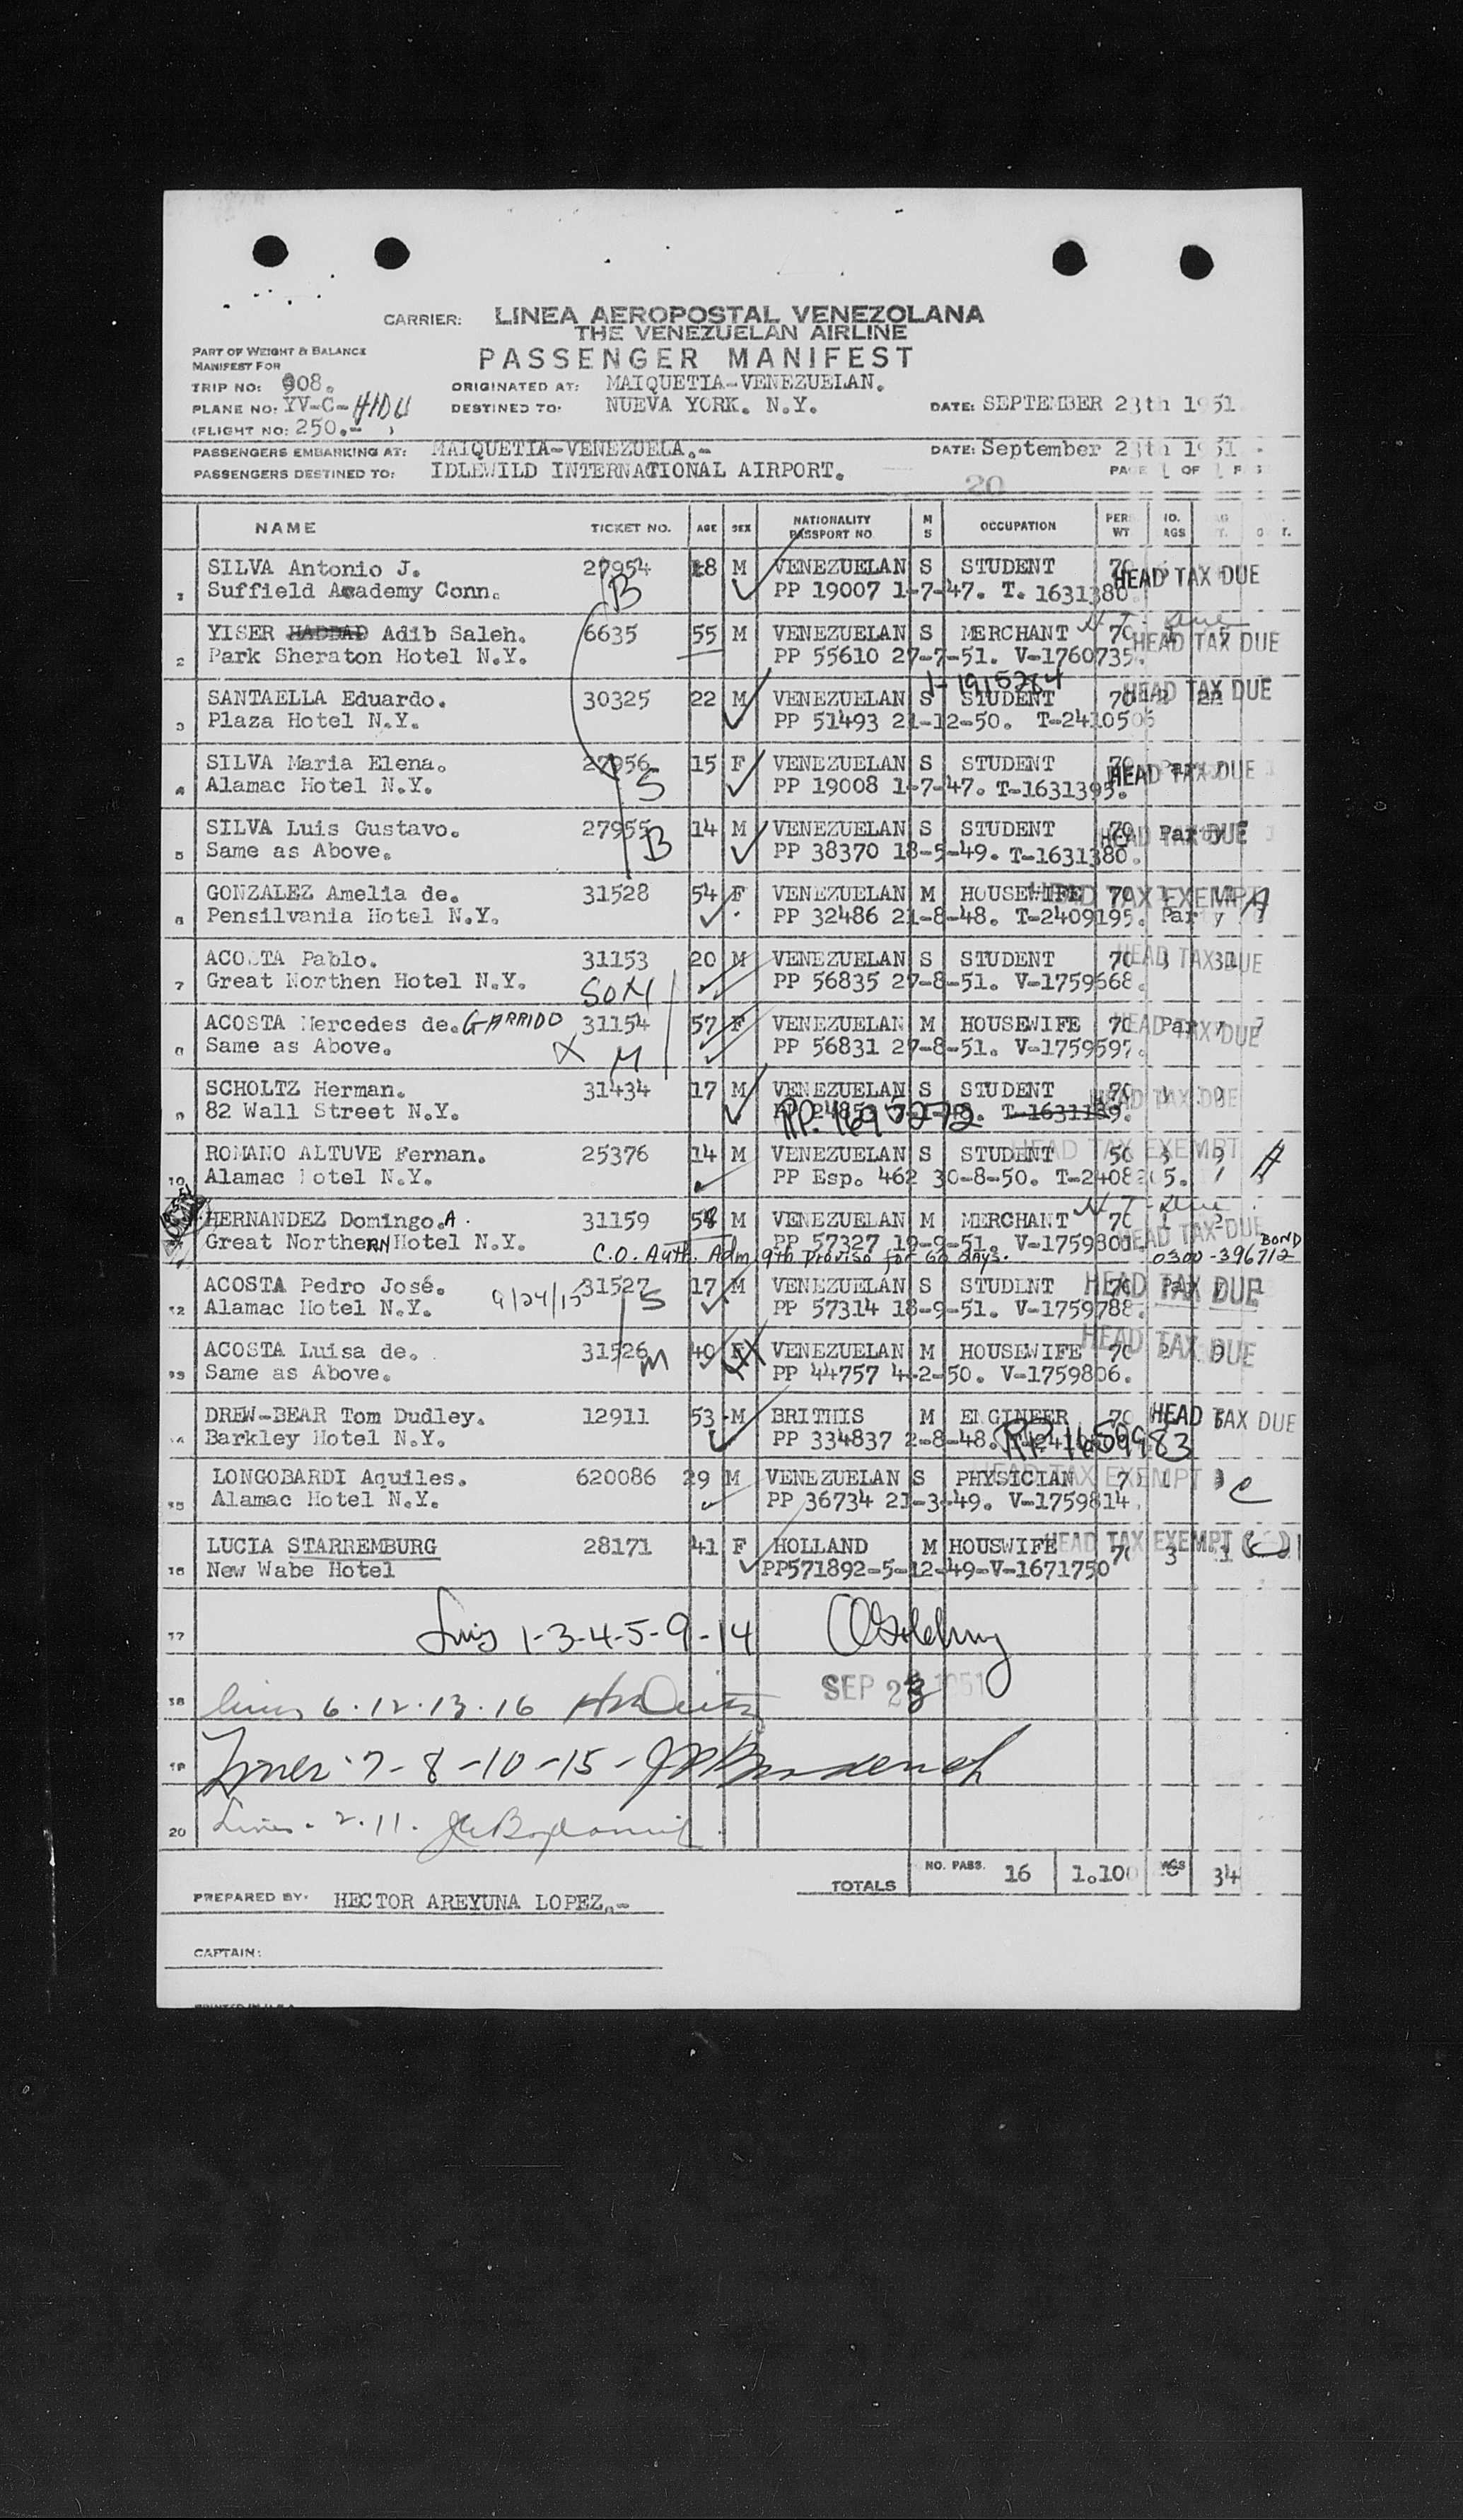 CARRIER: LINEA AEROPOSTAL VENEZOLANA
THE VENEZUELAN AIRLINE
PART OF WEIGHT & BALANCE
MANIFEST FOR
PASSENGER MANIFEST
TRIP NO: 908. ORIGINATED AT: MAIQUETIA-VENEZUELAN.
PLANE NO: YV-C- DESTINED TO: NUEVA YORK. N.Y. DATE: SEPTEMBER 23th 1951
(FLIGHT NO: 250.- )
PASSENGERS EMBANKING AT: MAIQUETIA-VENEZUELA.- DATE: September 23th 1951
PASSENGERS DESTINED TO: IDLEWILD INTERNATIONAL AIRPORT. PAGE 1 OF 1
20
NAME TICKET NO. AGE SEX NATIONALITY PASSPORT NO M S OCCUPATION PER WT
1 SILVA Antonio J. 27954 18 M VENEZUELAN S STUDENT 70 HEAD TAX DUE
Suffield Academy Conn. B PP 19007 1-7-47. T. 1631380.
2 YISER HADDAD Adib Saleh. 6635 55 M VENEZUELAN S MERCHANT 70 H.T. due HEAD TAX DUE
Park Sheraton Hotel N.Y. PP 55610 27-7-51. V-1760735.
1-1915284
3 SANTAELLA Eduardo. 30325 22 M VENEZUELAN S STUDENT 70 HEAD TAX DUE 22
Plaza Hotel N.Y. PP 51493 21-12-50. T-2410506
4 SILVA Maria Elena. 27956 15 F VENEZUELAN S STUDENT 70 HEAD TAX DUE
Alamac Hotel N.Y. S PP 19008 1-7-47. T-1631395.
5 SILVA Luis Gustavo. 27955 14 M VENEZUELAN S STUDENT 70 Party HEAD TAX DUE
Same as Above. B PP 38370 18-5-49. T-1631380.
6 GONZALEZ Amelia de. 31528 54 F VENEZUELAN M HOUSEWIFE 70 HEAD TAX EXEMPT A
Pensilvania Hotel N.Y. PP 32486 21-8-48. T-2409195. Party
7 ACOSTA Pablo. 31153 20 M VENEZUELAN S STUDENT 70 3 31 HEAD TAX DUE
Great Northen Hotel N.Y. SON PP 56835 27-8-51. V-1759668.
8 ACOSTA Mercedes de. GARRIDO 31154 57 F VENEZUELAN M HOUSEWIFE 70 Party HEAD TAX DUE
Same as Above. X M PP 56831 27-8-51. V-1759597.
9 SCHOLTZ Herman. 31434 17 M VENEZUELAN S STUDENT 70 HEAD TAX DUE
82 Wall Street N.Y. PP. 1695272 T-1631189.
10 ROMANO ALTUVE Fernan. 25376 14 M VENEZUELAN S STUDENT 50 3 9 HEAD TAX EXEMPT A
Alamac Hotel N.Y. PP Esp. 462 30-8-50. T-2408205.
HERNANDEZ Domingo.A. 31159 58 M VENEZUELAN M MERCHANT 70 1 2 H.T. due HEAD TAX DUE
Great NortheRN Hotel N.Y. PP 57327 19-9-51. V-1759801. BOND
C.O. Auth. Adm. 9th Proviso for 60 days. 0300-396712
12 ACOSTA Pedro José. 31527 17 M VENEZUELAN S STUDENT 70 HEAD TAX DUE
Alamac Hotel N.Y. 9/24/15 S PP 57314 18-9-51. V-1759788.
13 ACOSTA Luisa de. 31526 40 F VENEZUELAN M HOUSEWIFE 70 2 9 HEAD TAX DUE
Same as Above. m PP 44757 4-2-50. V-1759806.
14 DREW-BEAR Tom Dudley. 12911 53 M BRITHIS M ENGINEER 70 HEAD TAX DUE
Barkley Hotel N.Y. PP 334837 2-8-48. PP. 1650983
15 LONGOBARDI Aquiles. 620086 29 M VENEZUELAN S PHYSICIAN 70 1 HEAD TAX EXEMPT C
Alamac Hotel N.Y. PP 36734 21-3-49. V-1759814.
16 LUCIA STARREMBURG 28171 41 F HOLLAND M HOUSWIFE 70 3 HEAD TAX EXEMPT
New Wabe Hotel PP571892-5-12-49-V-1671750
17 Lines 1-3-4-5-9-14
SEP 23 1951
18 lines 6.12.13.16
19 Lines 7-8-10-15-
20 Lines. 2.11.
TOTALS NO. PASS. 16 1.100 34
PREPARED BY: HECTOR AREYUNA LOPEZ.-
CAPTAIN:
PRINTED IN U.S.A.